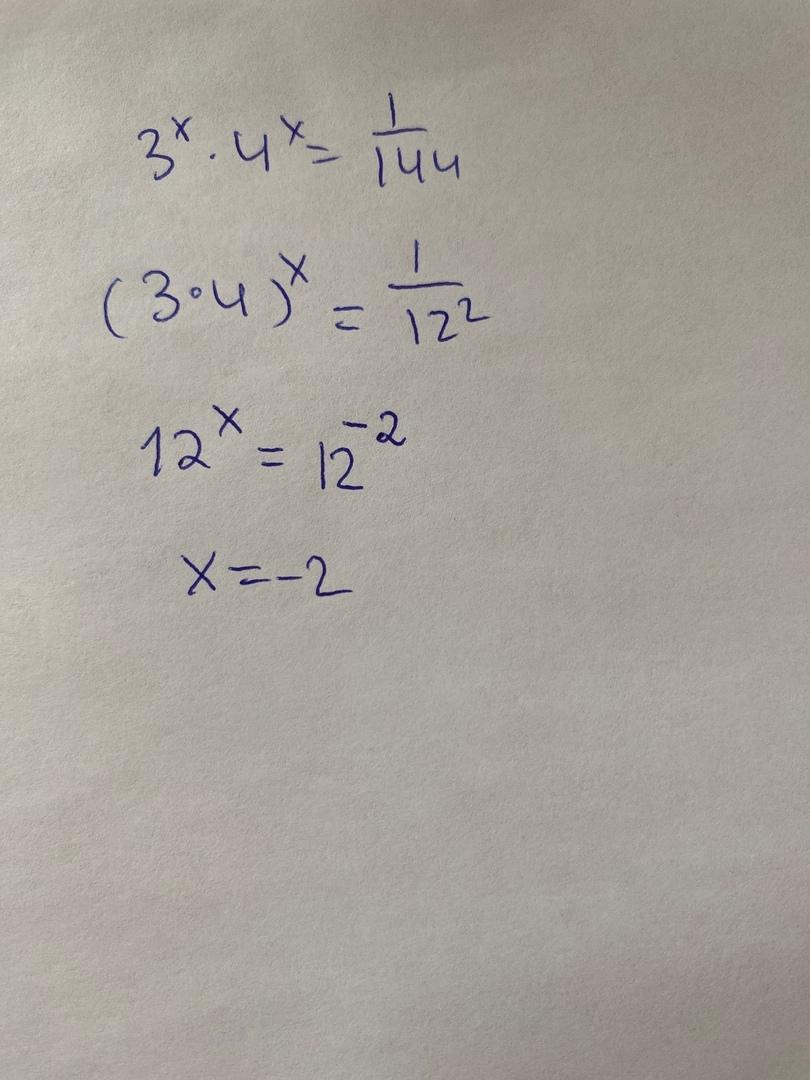 3^x · 4^x = 1/144
(3 · 4)^x = 1/12^2
12^x = 12^-2
x = -2